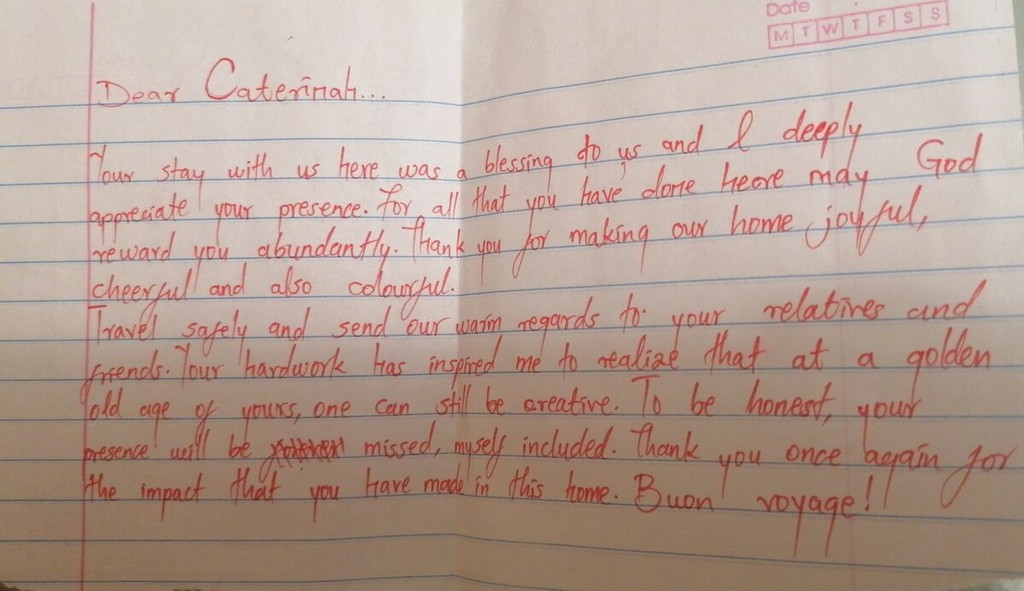 Date
M T W T F S S
Dear Caterinah...
Your stay with us here was a blessing to us and I deeply
appreciate your presence. For all that you have done heere may God
reward you abundantly. Thank you for making our home joyful,
cheerful and also colourful.
Travel safely and send our warm regards to your relatives and
friends. Your hardwork has inspired me to realize that at a golden
old age of yours, one can still be creative. To be honest, your
presence will be missed, myself included. Thank you once again for
the impact that you have made in this home. Buon voyage!!